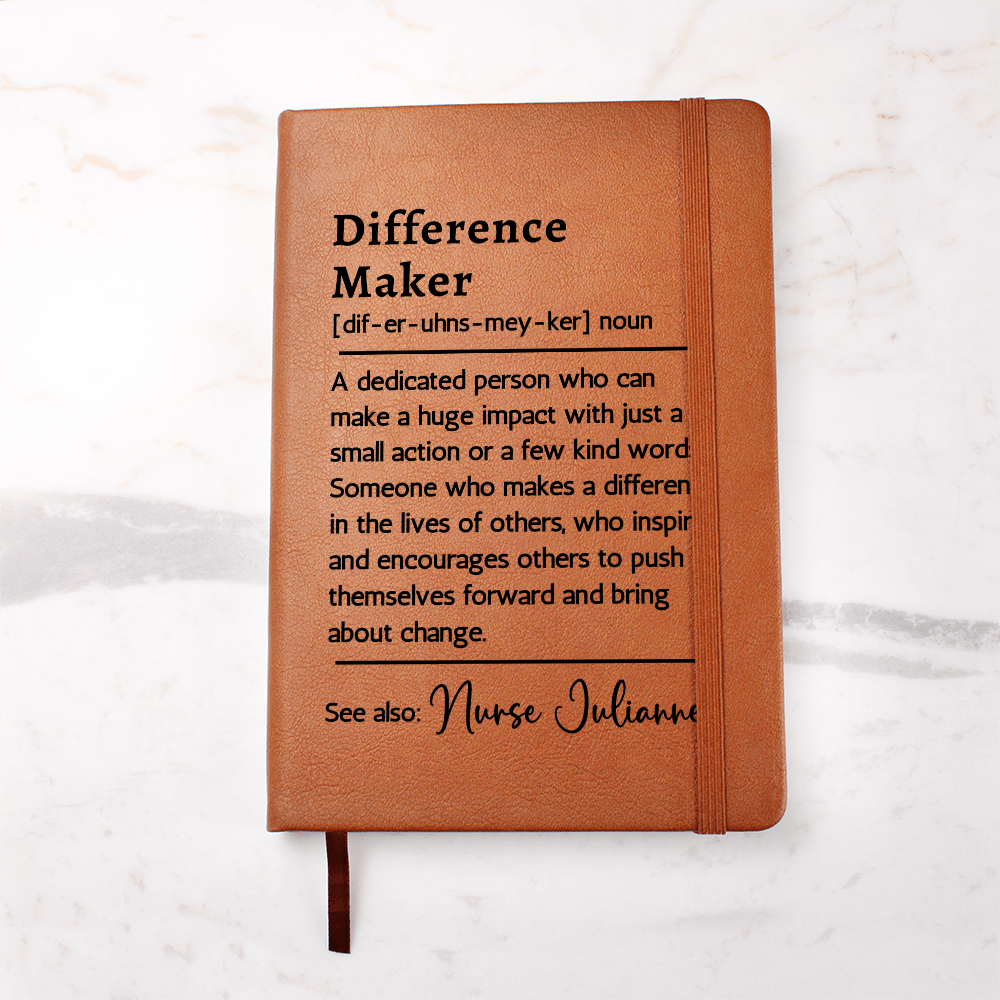 Difference
Maker
[dif-er-uhns-mey-ker] noun
A dedicated person who can
make a huge impact with just a
small action or a few kind word
Someone who makes a differen
in the lives of others, who inspir
and encourages others to push
themselves forward and bring
about change.
See also: Nurse Julianne